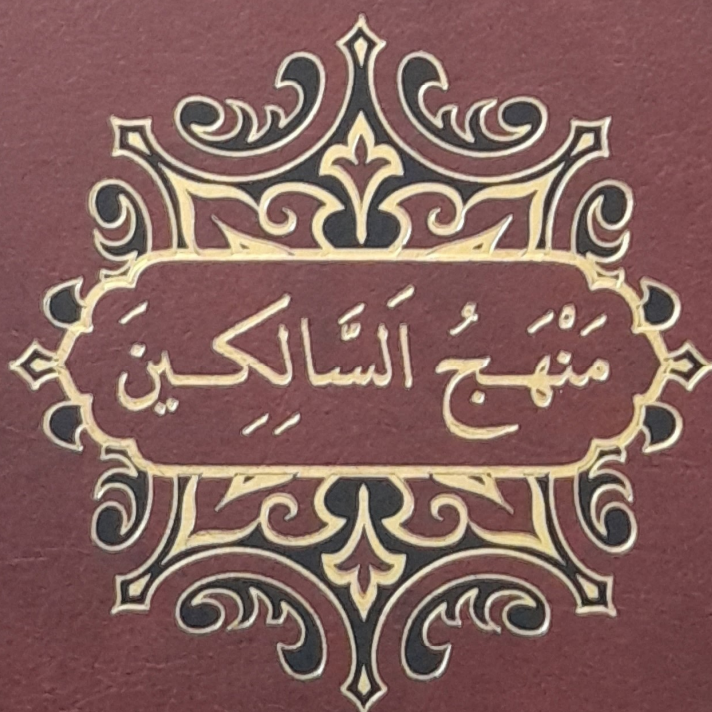 مَنْهَجُ اَلسَّالِكِينَ